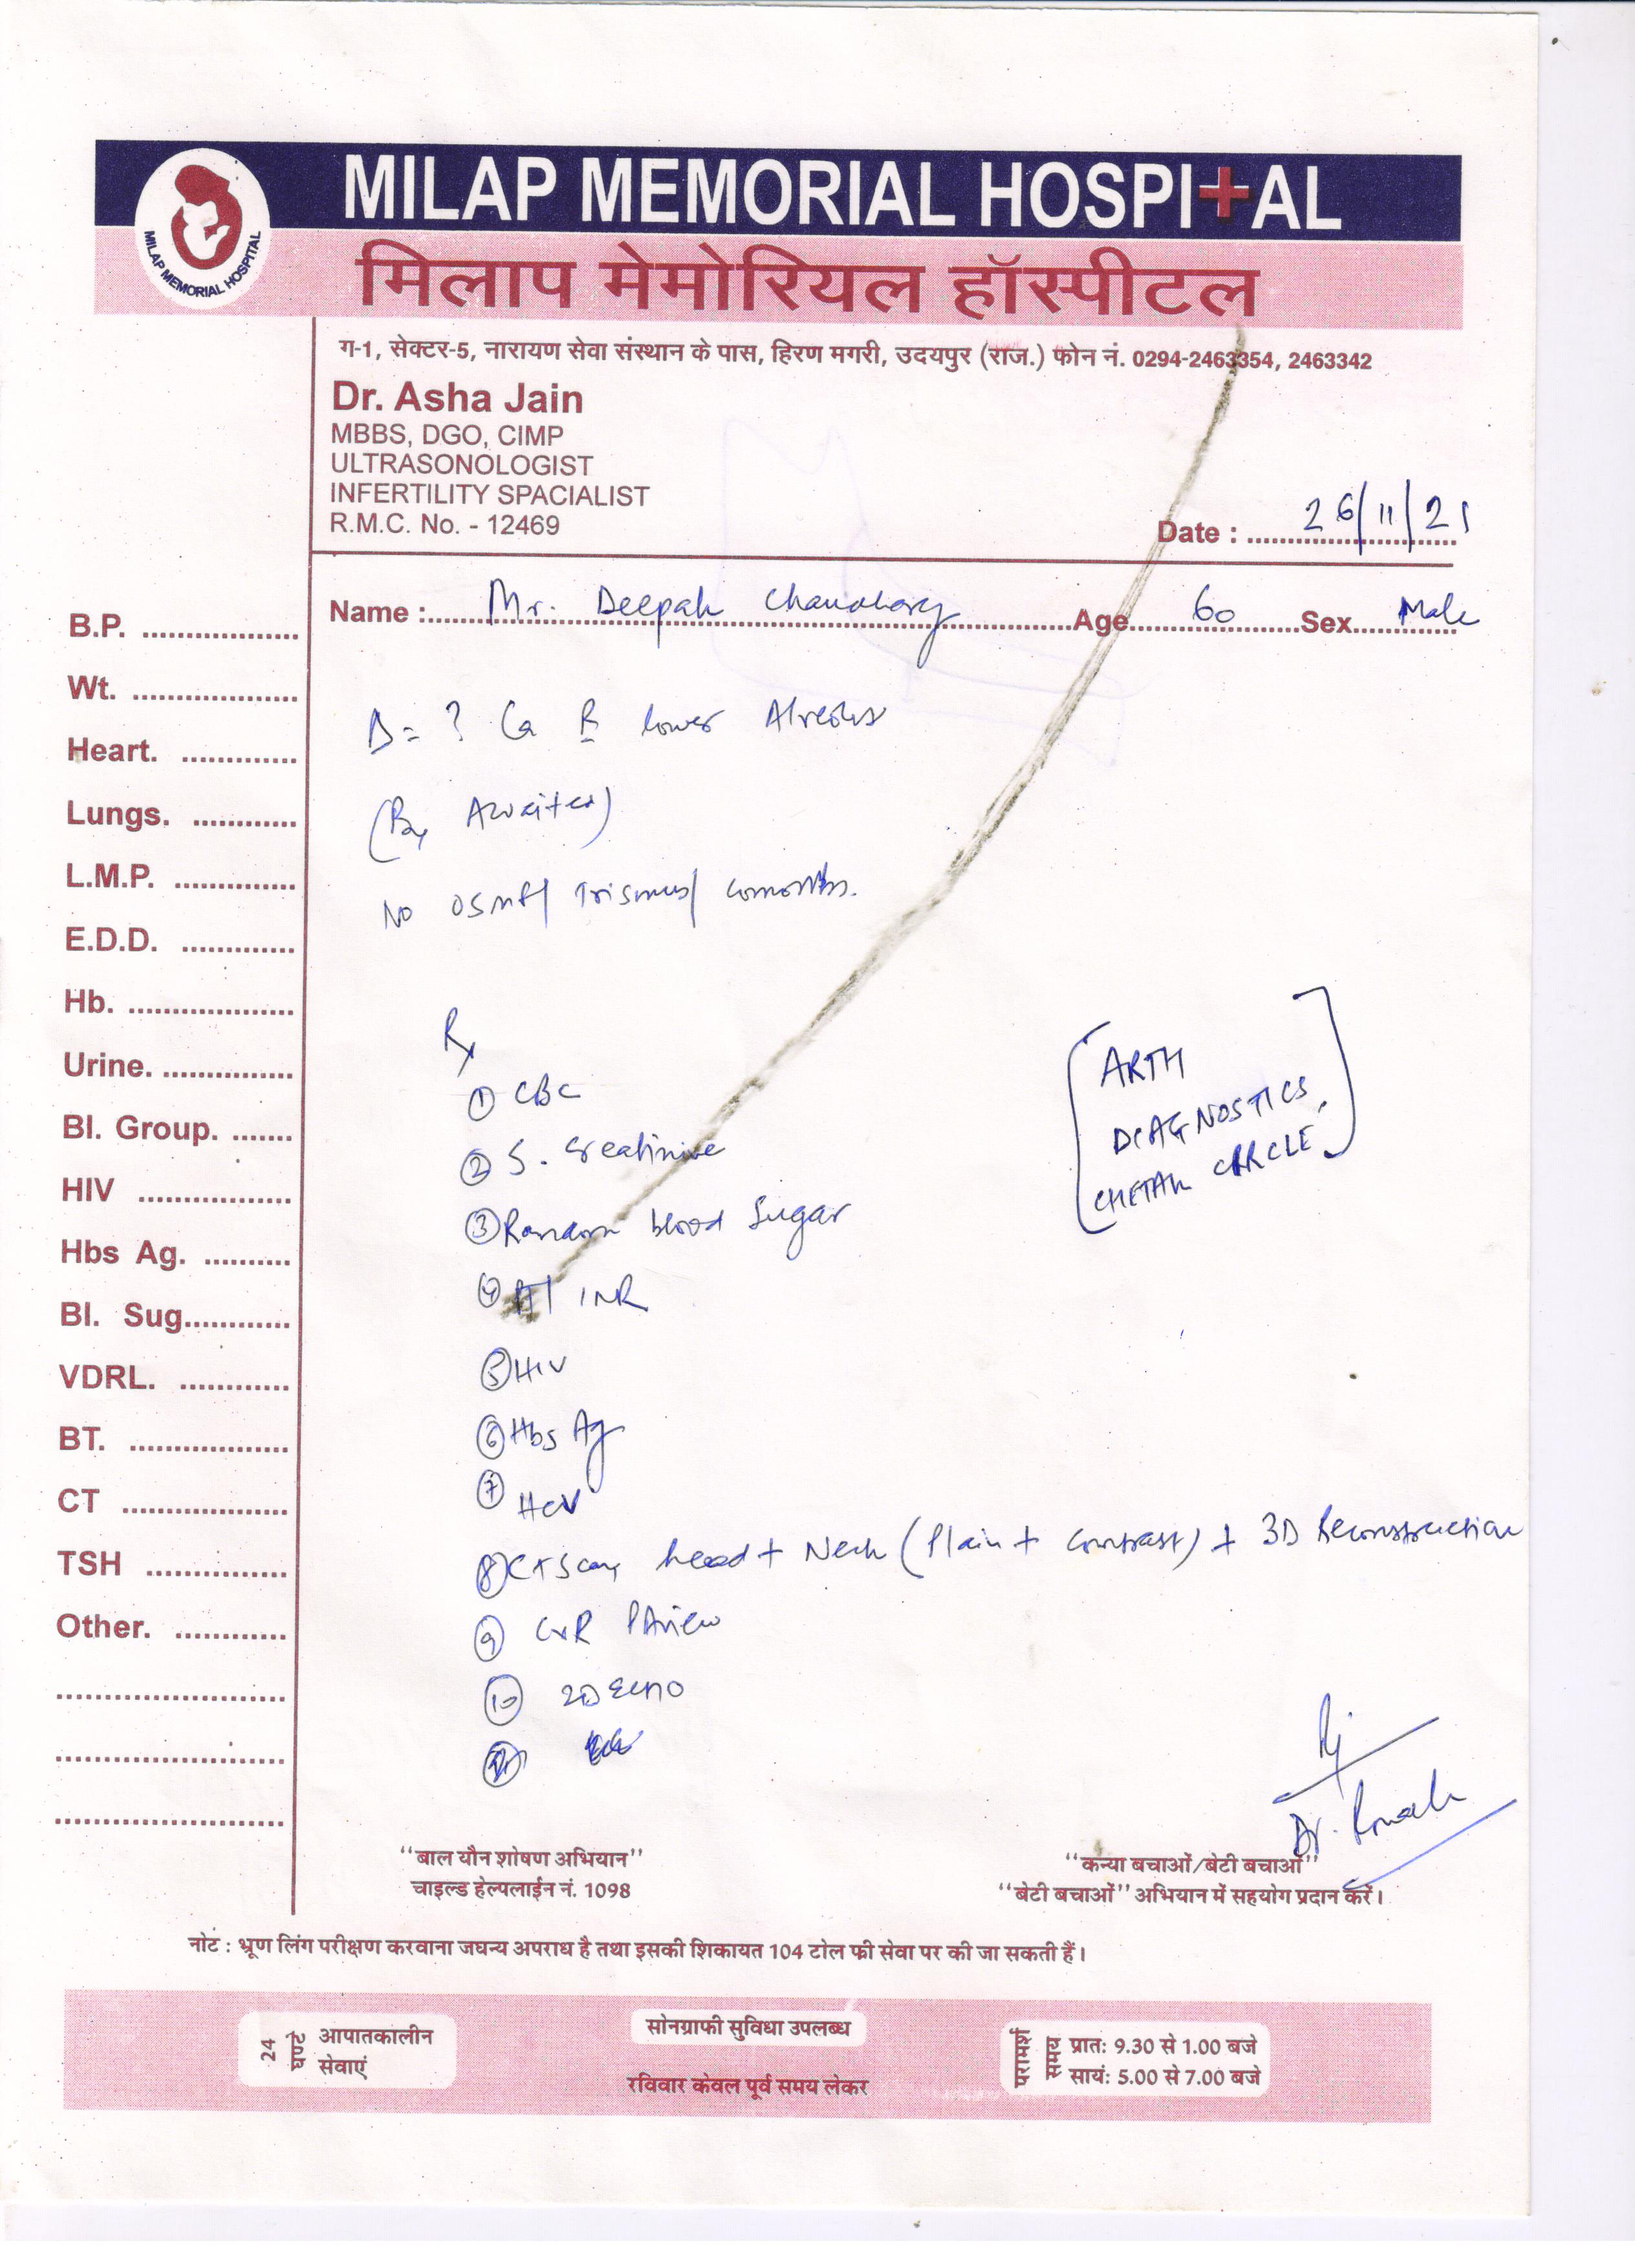 MILAP MEMORIAL HOSPITAL
मिलाप मेमोरियल हॉस्पीटल
MILAP MEMORIAL HOSPITAL
ग-1, सेक्टर-5, नारायण सेवा संस्थान के पास, हिरण मगरी, उदयपुर (राज.) फोन नं. 0294-2463354, 2463342
Dr. Asha Jain
MBBS, DGO, CIMP
ULTRASONOLOGIST
INFERTILITY SPACIALIST
R.M.C. No. - 12469
Date : 26/11/21
Name : Mr. Deepak Chaudhary Age 60 Sex Male
B.P.
Wt.
Heart.
Lungs.
L.M.P.
E.D.D.
Hb.
Urine.
Bl. Group.
HIV
Hbs Ag.
Bl. Sug
VDRL.
BT.
CT
TSH
Other.
D= ? Ca R lower Alveolus
(Bx Awaited)
No OSMF/ Trismus/
Rx
① CBC
② S. Creatinine
③ Random blood Sugar
④ INR
⑤ HIV
⑥ Hbs Ag
⑦ HCV
⑧ CT Scan head + Neck (Plain + Contrast) + 3D Reconstruction
⑨ CxR PA view
⑩ 2D ECHO
[ARTH
DIAGNOSTICS,
CHETAK CIRCLE]
Dr.
‘‘बाल यौन शोषण अभियान’’
चाइल्ड हेल्पलाईन नं. 1098
‘‘कन्या बचाओं/बेटी बचाओं’’
‘‘बेटी बचाओं’’ अभियान में सहयोग प्रदान करें।
नोट : भ्रूण लिंग परीक्षण करवाना जघन्य अपराध है तथा इसकी शिकायत 104 टोल फ्री सेवा पर की जा सकती हैं।
24 घण्टे आपातकालीन
सेवाएं
सोनग्राफी सुविधा उपलब्ध
रविवार केवल पूर्व समय लेकर
परामर्श समय प्रात: 9.30 से 1.00 बजे
सायं: 5.00 से 7.00 बजे